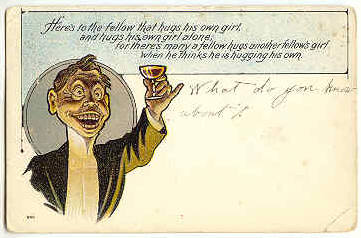 Here's to the fellow that hugs his own girl,
and hugs his own girl alone,
for there's many a fellow hugs another fellow's girl
when he thinks he is hugging his own.
What do you know
about it